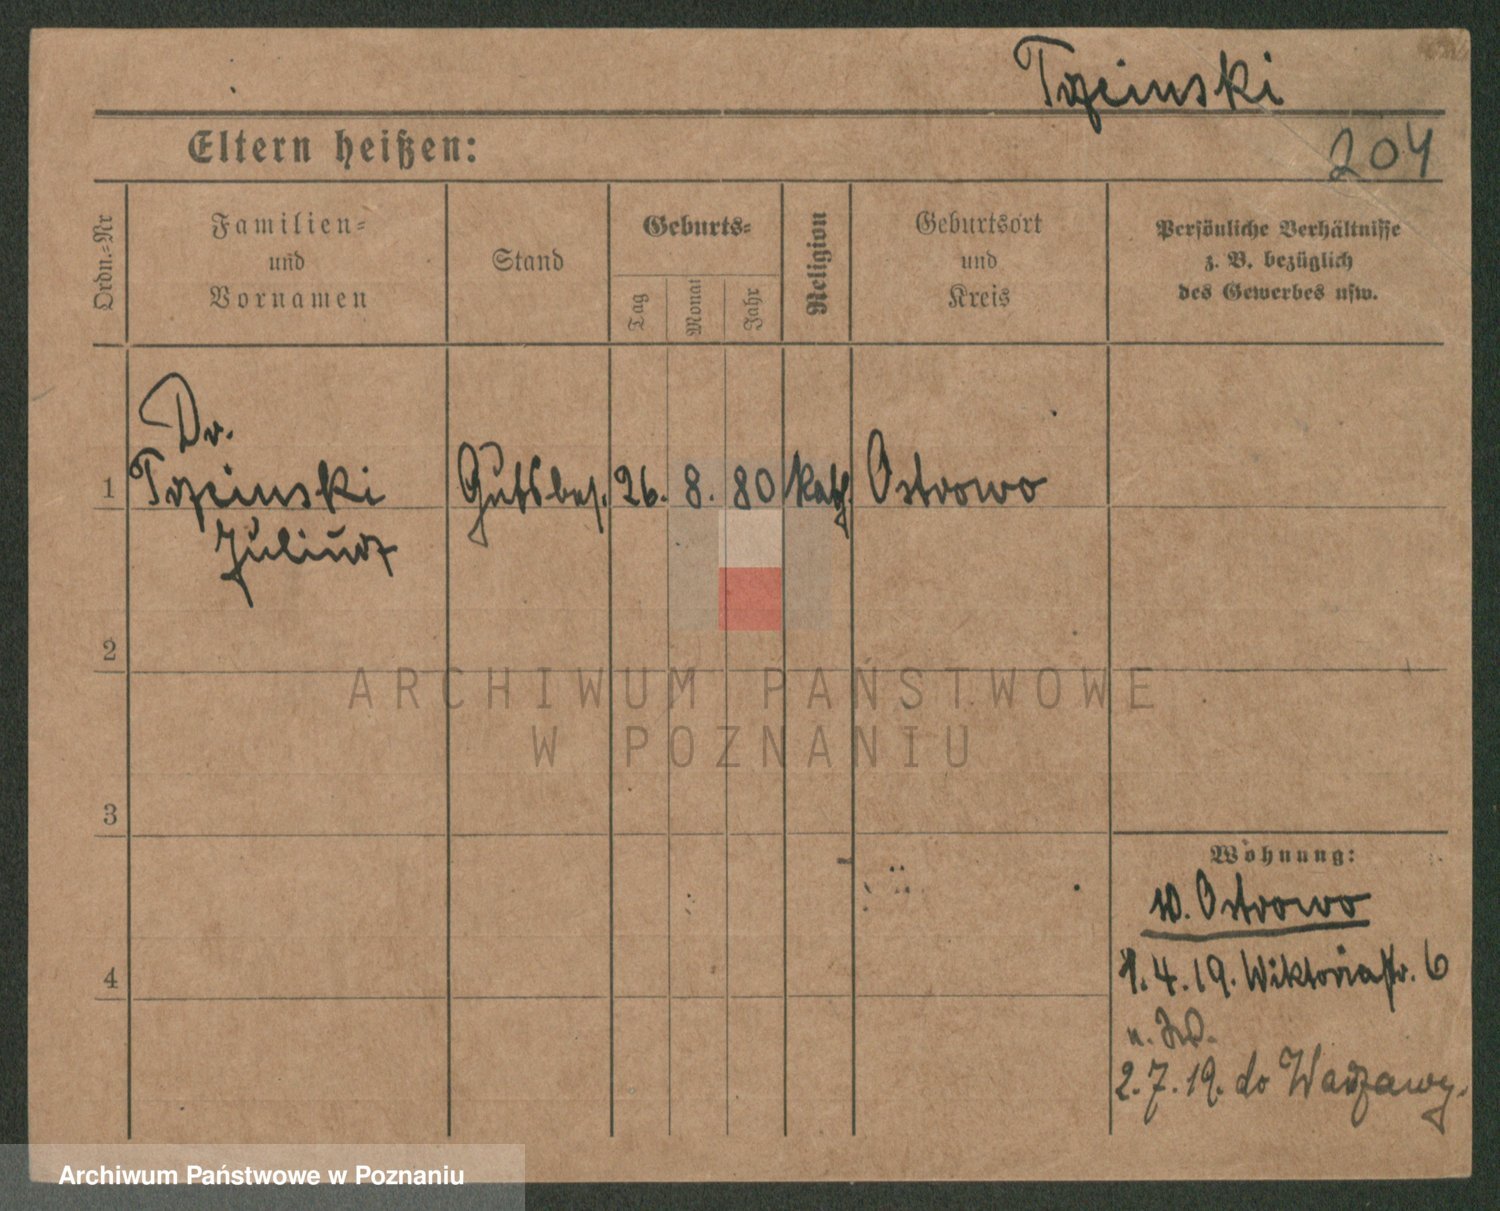 Trzcinski
204
Eltern heißen:
Ordn.=Nr
Familien=
und
Vornamen
Stand
Geburts=
Tag
Monat
Jahr
Religion
Geburtsort
und
Kreis
Persönliche Verhältnisse
z. B. bezüglich
des Gewerbes usw.
Dr.
1 Trzcinski Gutsbes. 26. 8. 80 kath. Ostrowo
Juliusz
2
ARCHIWUM PAŃSTWOWE
W POZNANIU
3
Wohnung:
w. Ostrowo
1.4.19. Wiktoriastr. 6
4
2.7.19. do Warszawy.
Archiwum Państwowe w Poznaniu